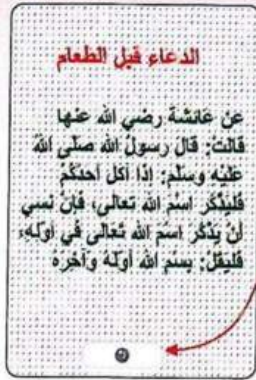 الدعاء قبل الطعام
عن عائشة رضي الله عنها
قالت: قال رسول الله صلى الله
عليه وسلم: إذا أكل أحدكم
فليذكر اسم الله تعالى، فإن نسي
أن يذكر اسم الله تعالى في أوله،
فليقل: بسم الله أوله وآخره